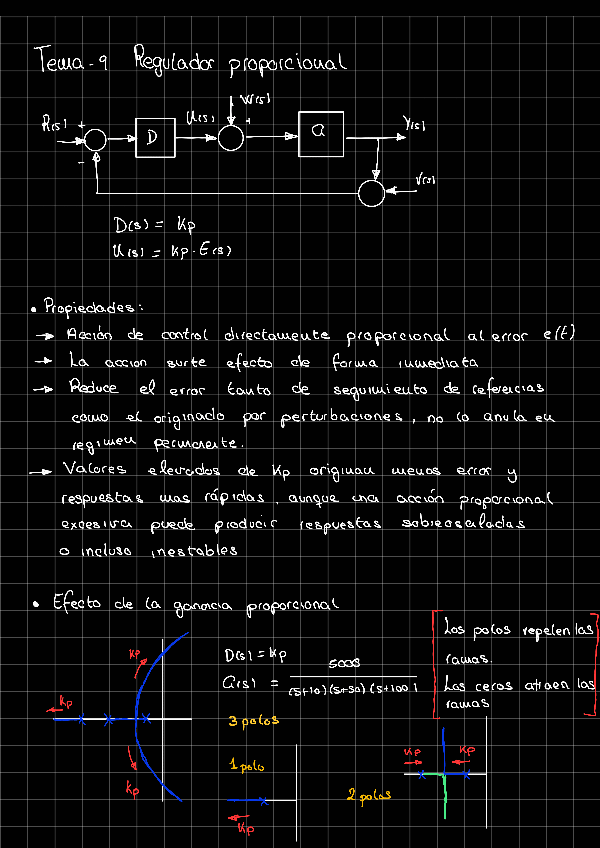 Tema-9 Regulador proporcional
W(s)
R(s) + D U(s) + G Y(s)
-
V(s)
D(s) = Kp
U(s) = Kp · E(s)
• Propiedades:
→ Acción de control directamente proporcional al error e(t)
→ La accion surte efecto de forma inmediata
→ Reduce el error tanto de seguimiento de referencias
como el originado por perturbaciones, no lo anula en
regimen permanente.
→ Valores elevados de Kp originan menos error y
respuestas mas rápidas, aunque una acción proporcional
excesiva puede producir respuestas sobreosciladas
o incluso inestables
• Efecto de la ganancia proporcional
Los polos repelen las
ramas.
Los ceros atraen las
ramas
D(s) = Kp
G(s) = 5000 / (s+10)(s+50)(s+100)
Kp
Kp
Kp
3 polos
1 polo
Kp
Kp Kp
2 polos